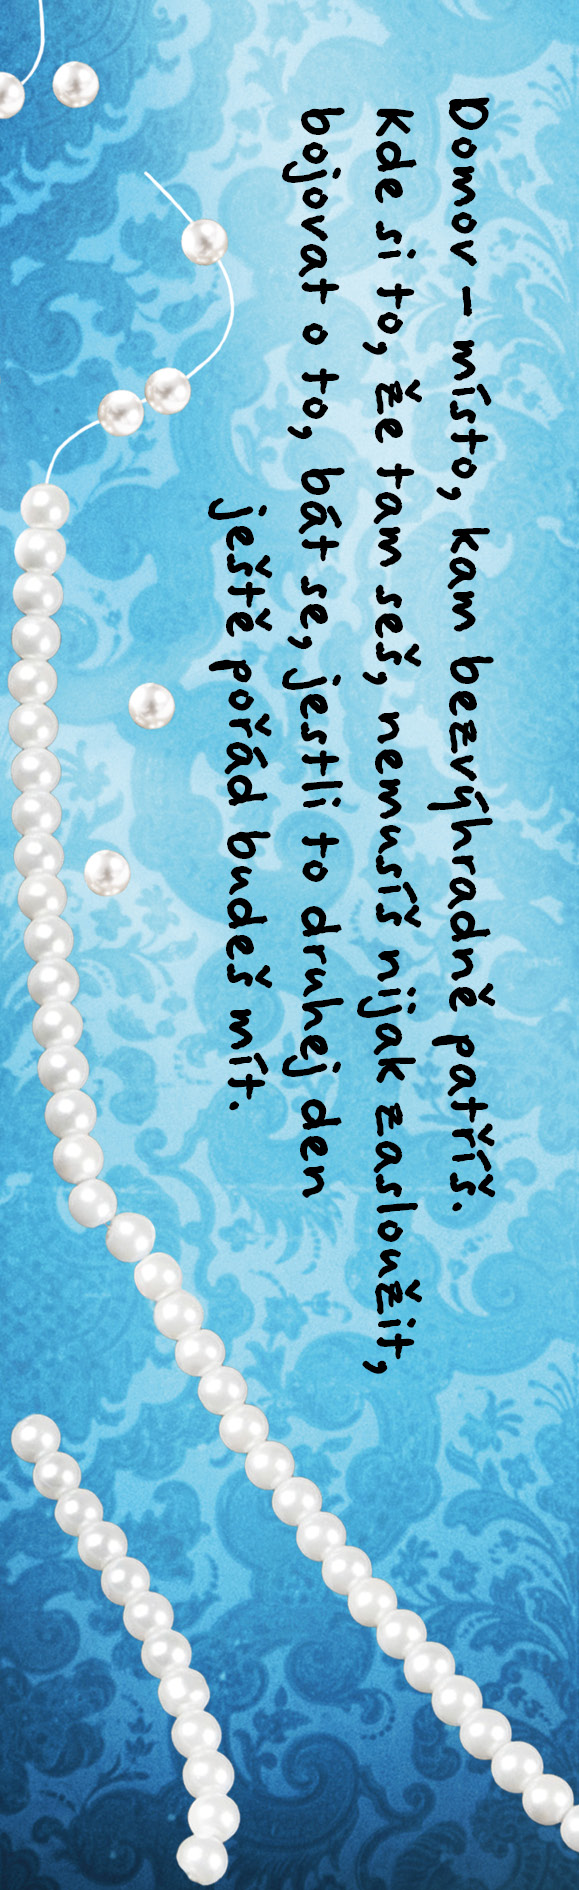 Domov – místo, kam bezvýhradně patříš.
Kde si to, že tam seš, nemusíš nijak zasloužit,
bojovat o to, bát se, jestli to druhej den
ještě pořád budeš mít.